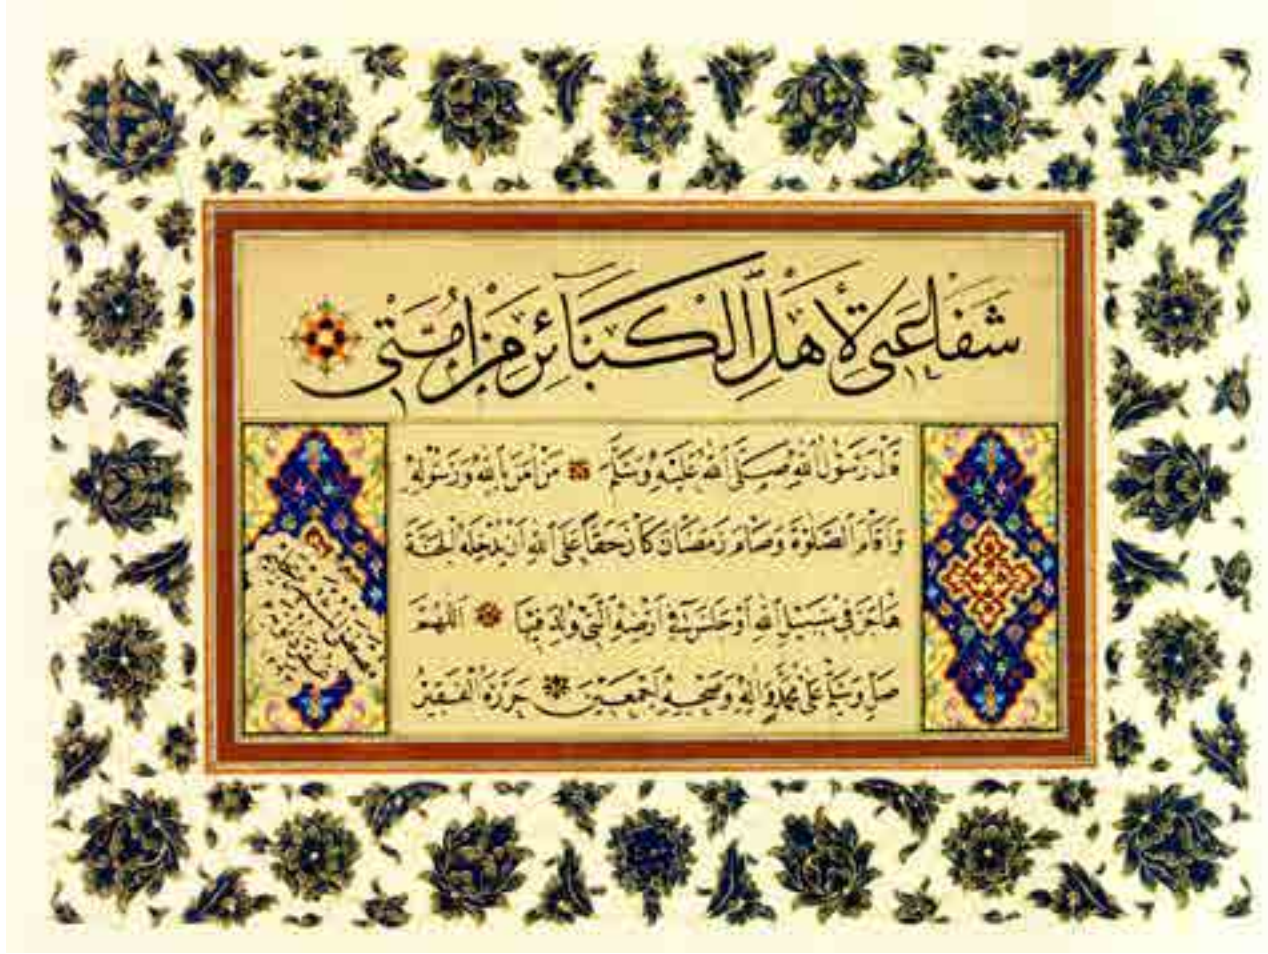 شَفَاعَتِي لِأَهْلِ الْكَبَائِرِ مِنْ أُمَّتِي
قَالَ رَسُولُ اللهِ صَلَّى اللهُ عَلَيْهِ وَسَلَّمَ مَنْ آمَنَ بِاللهِ وَرَسُولِهِ
وَأَقَامَ الصَّلٰوةَ وَصَامَ رَمَضَانَ كَانَ حَقًّا عَلَى اللهِ أَنْ يُدْخِلَهُ الْجَنَّةَ
هَاجَرَ فِي سَبِيلِ اللهِ أَوْ جَلَسَ فِي أَرْضِهِ الَّتِي وُلِدَ فِيهَا اَللّٰهُمَّ
صَلِّ وَسَلِّمْ عَلَى مُحَمَّدٍ وَآلِهِ وَصَحْبِهِ أَجْمَعِينَ حَرَّرَهُ الْفَقِيرُ